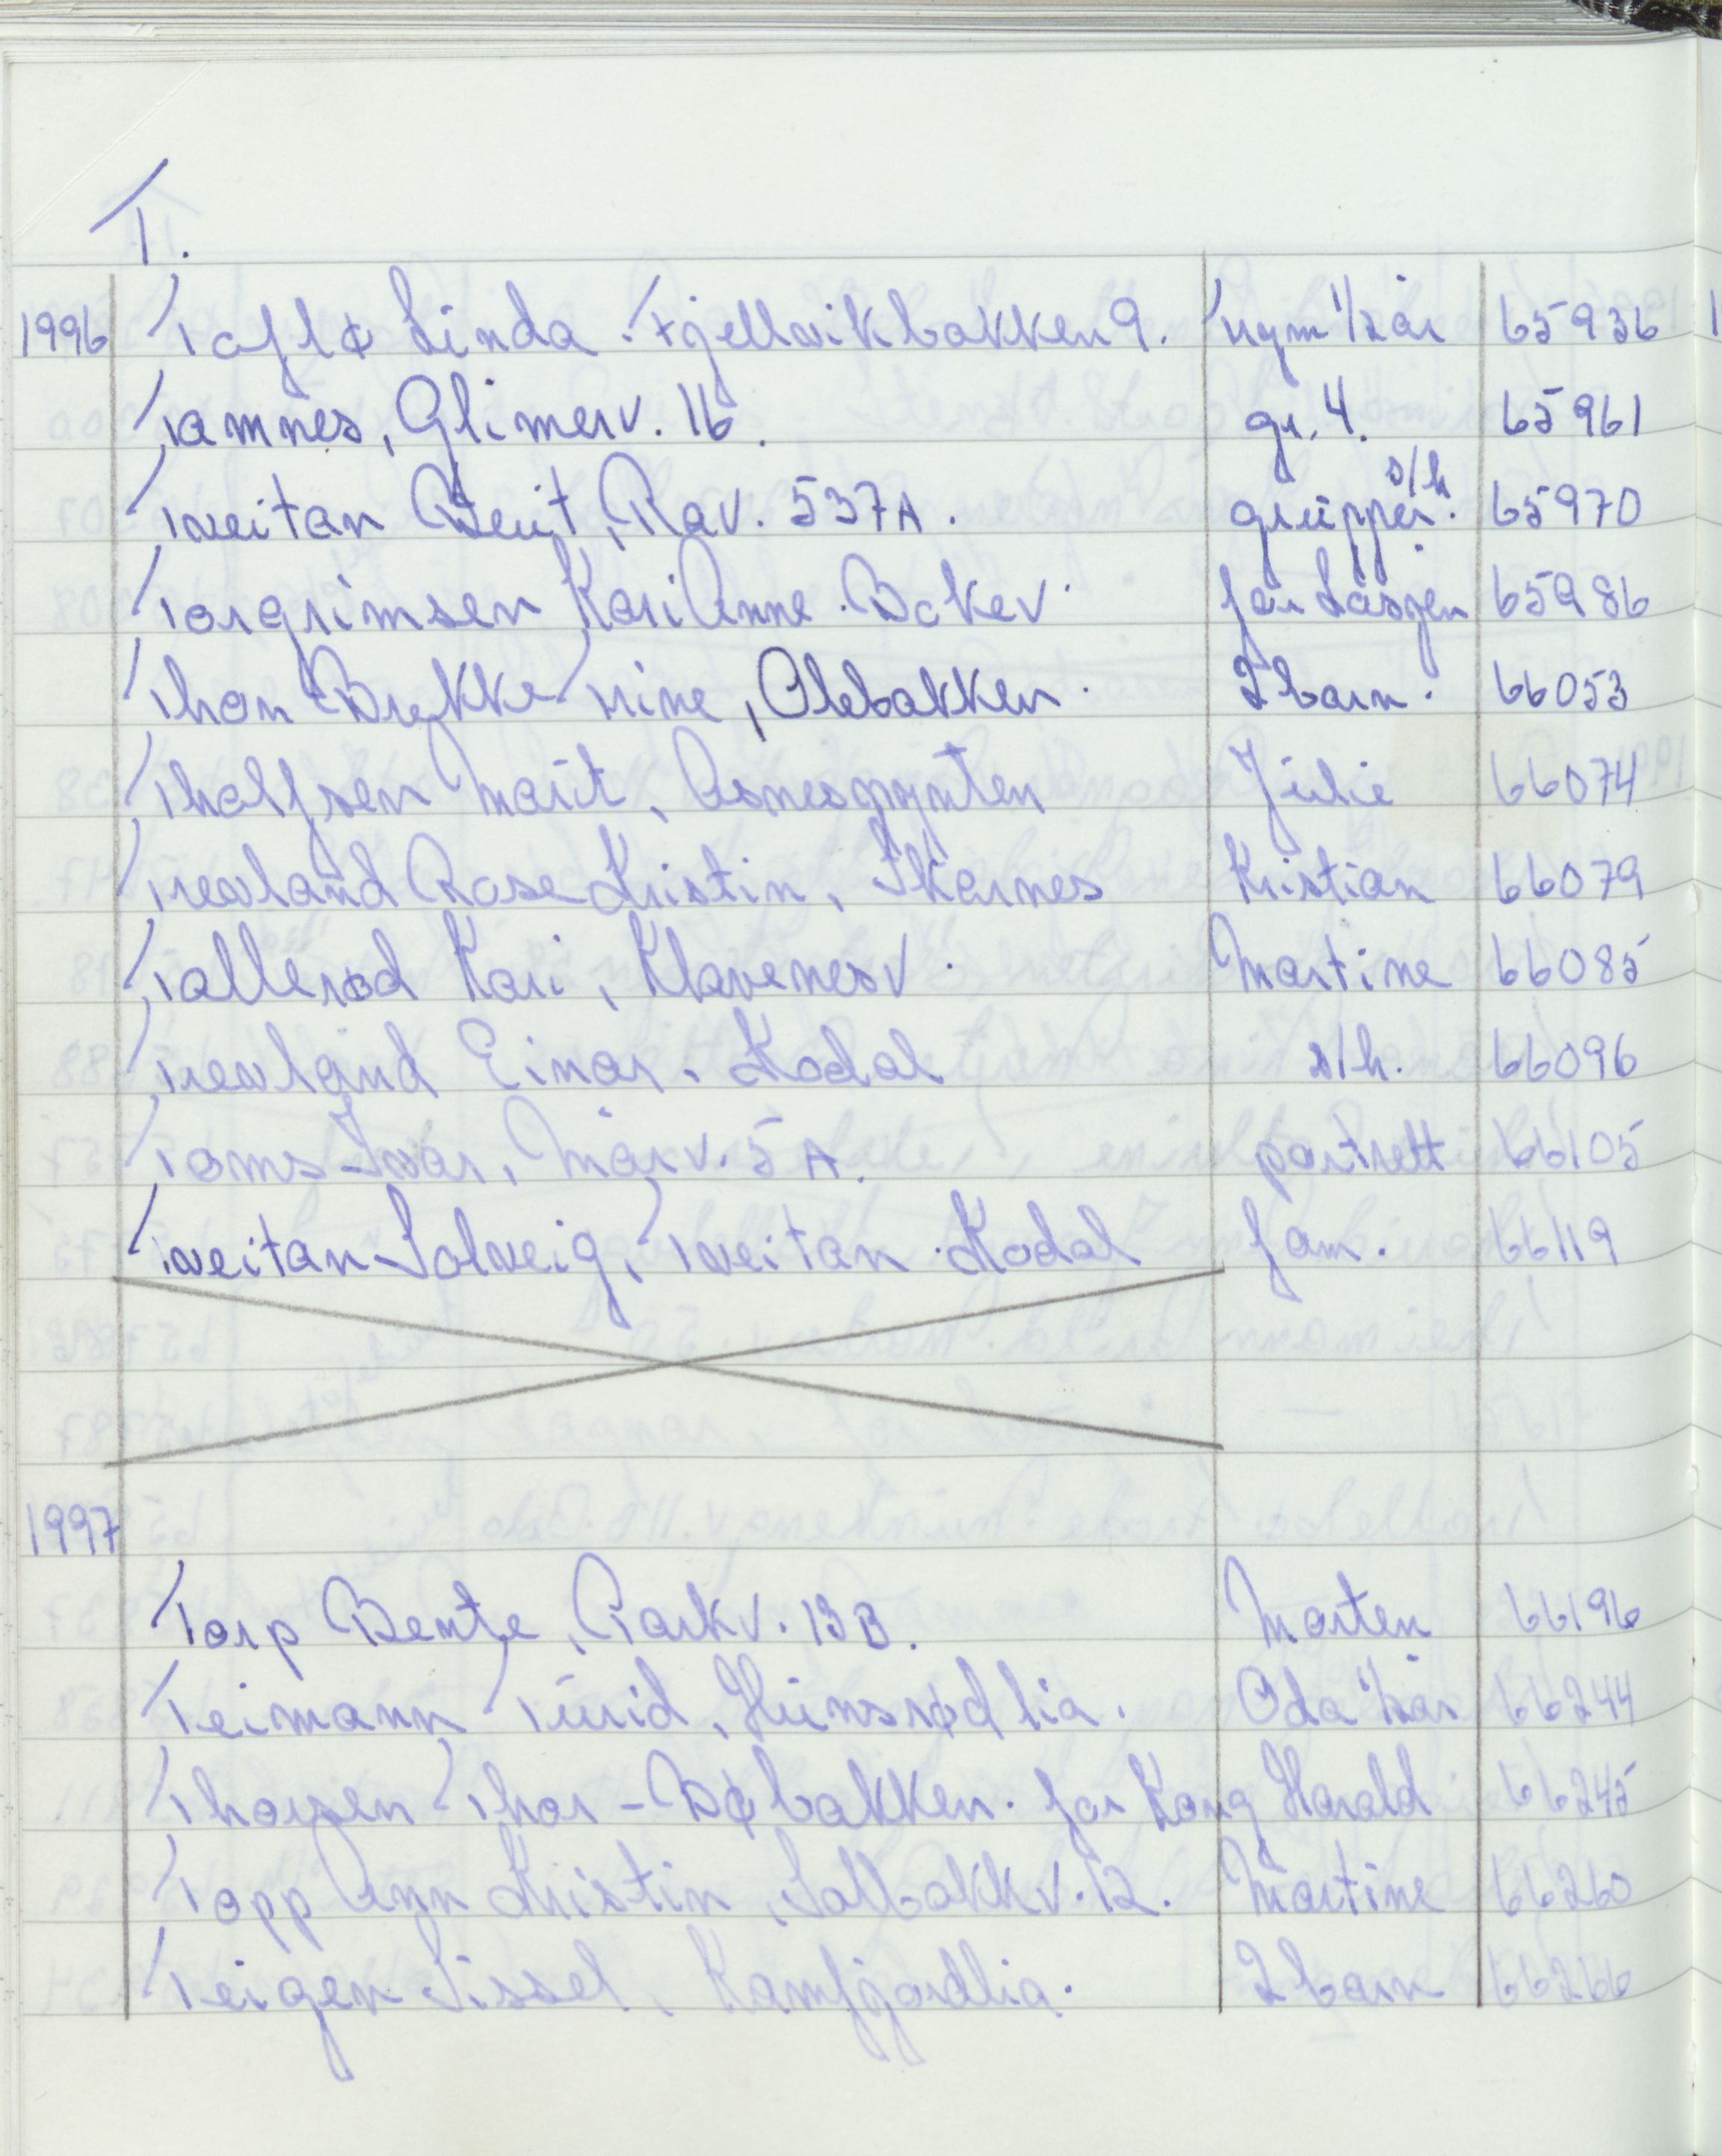 T.
1996 Taflø Linda. Fjellvikbakken 9. Trym 1/2 år 65936
Tamnes, Glimerv. 16. gr. 4. 65961
Tveitan Berit, Rav. 537A. grupper. s/h 65970
Torgrimsen Kari Anne. Bakev. 65986
Thon Brekke Trine, Olebakken. 2 barn. 66053
Tholfsen Marit, Asnespynten Julie 66074
Trevland Rose Kristin, Skarnes Kristian 66079
Tallerød Kari, Klavenesv. Martine 66085
Trevland Einar. Kodal s/h. 66096
Toms Ivar, Marv. 5 A. portrett 66105
Tveitan Solveig, Tveitan. Kodal fam. 66119
1997
Torp Bente, Parkv. 13 B. Morten 66196
Teimann Turid, Hunsrødlia. Oda 1/2 år 66244
Thorsen Thor - Bøbakken. for Kong Harald 66245
Topp Ann Kristin, Solbakkv. 12. Martine 66260
Teigen Sissel, Kamfjordlia. 2 barn 66266